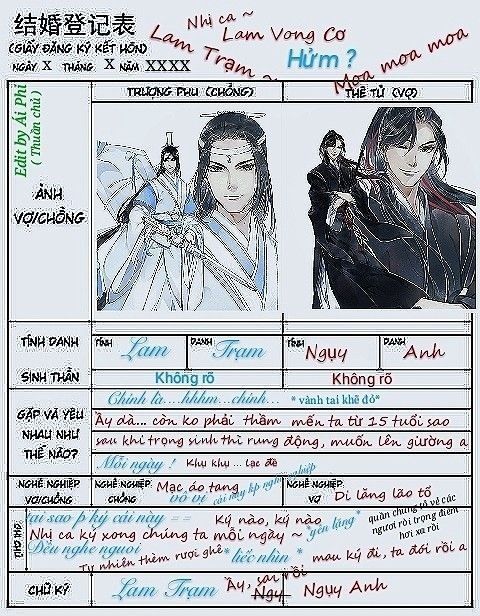 结婚登记表
(GIẤY ĐĂNG KÝ KẾT HÔN)
NGÀY X THÁNG X NĂM XXXX
Nhị ca ~
Lam Vong Cơ
Lam Trạm ~
Hửm ?
Moa moa moa
Edit by Ái Phi
(Thuần chủ)
TRƯỢNG PHU (CHỒNG)
THÊ TỬ (VỢ)
ẢNH
VỢ/CHỒNG
TÍNH DANH
TÍNH Lam DANH Trạm
TÍNH Ngụy DANH Anh
SINH THẦN
Không rõ
Không rõ
GẶP VÀ YÊU
NHAU NHƯ
THẾ NÀO?
Chính là...hhhm...chính... * vành tai khẽ đỏ*
Ầy dà... còn ko phải thầm mến ta từ 15 tuổi sao
sau khi trọng sinh thì rung động, muốn lên giường a
Mỗi ngày ! Khụ khụ ... lạc đề
NGHỀ NGHIỆP
VỢ/CHỒNG
NGHỀ NGHIỆP
CHỒNG
Mạc áo tang
vô vi
NGHỀ NGHIỆP
VỢ
Di lăng lão tổ
tại sao p ký cái này = =
Ký nào, ký nào
Nhị ca ký xong chúng ta mỗi ngày ~
*yên lặng*
quần chúng tỏ vẻ các
ngươi rời trọng điểm
hơi xa rồi
Đều nghe ngươi
Tự nhiên thèm rượi ghê
* liếc nhìn *
mau ký đi, ta đói rồi a
CHỮ KÝ
Lam Trạm
Ầy, sai rồi
Ngụy Anh